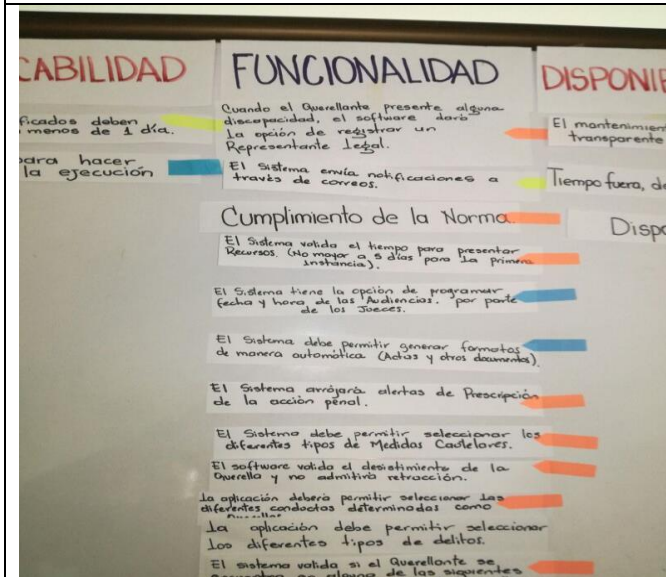 CABILIDAD
ficados deben
menos de 1 día.
para hacer
la ejecución
FUNCIONALIDAD
Cuando el Querellante presente alguna
discapacidad, el software dará
la opción de registrar un
Representante Legal.
El Sistema envía notificaciones a
través de correos.
Cumplimiento de la Norma.
El Sistema valida el tiempo para presentar
Recursos. (No mayor a 5 días para la primera
instancia).
El Sistema tiene la opción de programar
fecha y hora de las Audiencias. por parte
de los Jueces.
El Sistema debe permitir generar formatos
de manera automática (Actas y otros documentos).
El Sistema arrojará alertas de Prescripción
de la acción penal.
El Sistema debe permitir seleccionar los
diferentes tipos de Medidas Cautelares.
El software valida el desistimiento de la
Querella y no admitirá retracción.
La aplicación deberá permitir seleccionar las
diferentes conductas determinadas como
La aplicación debe permitir seleccionar
los diferentes tipos de delitos.
El sistema valida si el Querellante se
en alguna de las siguientes
DISPONIB
El mantenimien
transparente
Tiempo fuera, de
Dispo